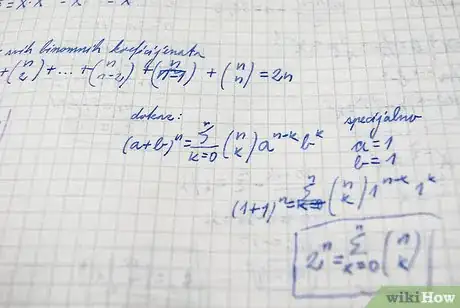 = x · x
nih binomnih koeficijenata
+ (n 2) + ... + (n n-2) + (n n-1) + (n n) = 2n
dokaz:
(a+b)^n = Σ_{k=0}^{n} (n k) a^{n-k} b^k
specijalno
a = 1
b = 1
(1+1)^n = Σ_{k=0}^{n} (n k) 1^{n-k} 1^k
2^n = Σ_{k=0}^{n} (n k)
wikiHow